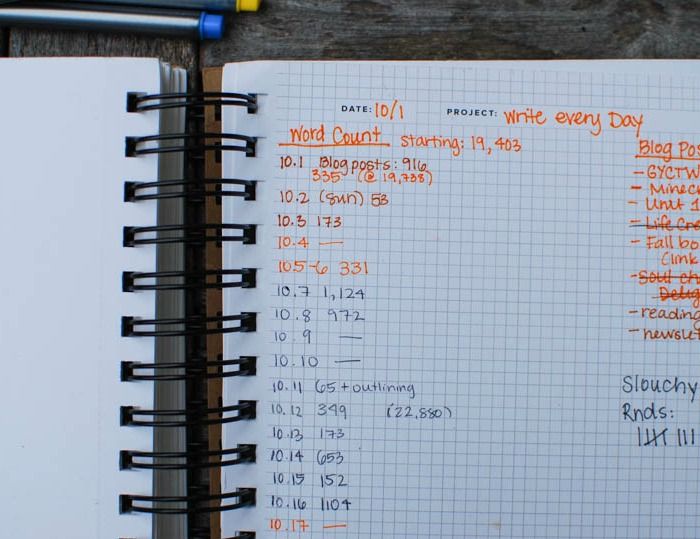 DATE: 10/1 PROJECT: Write every Day
Word Count starting: 19,403
10.1 Blog posts: 916
335 (@ 19,738)
10.2 (sun) 53
10.3 173
10.4 —
10.5-6 331
10.7 1,124
10.8 972
10.9 —
10.10 —
10.11 65 + outlining
10.12 349 (22,880)
10.13 173
10.14 653
10.15 152
10.16 1104
10.17 —
Blog Pos
- GYCTW
- Minec
- Unit 1
- Life Cre
- Fall bo
Clink
- Soul ch
Delig
- reading
- newslet
Slouchy
Rnds: